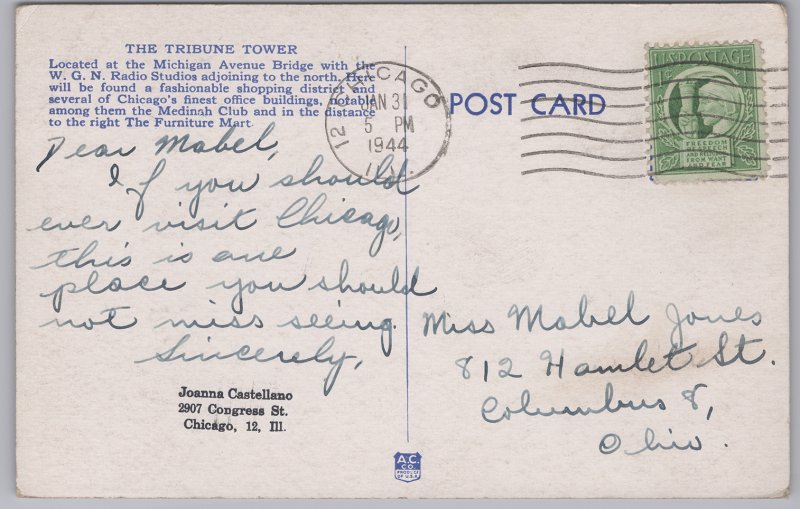 THE TRIBUNE TOWER
Located at the Michigan Avenue Bridge with the
W. G. N. Radio Studios adjoining to the north. Here
will be found a fashionable shopping district and
several of Chicago's finest office buildings, notable
among them the Medinah Club and in the distance
to the right The Furniture Mart.
Dear Mabel,
If you should
ever visit Chicago,
this is one
place you should
not miss seeing.
Sincerely,
Joanna Castellano
2907 Congress St.
Chicago, 12, Ill.
CHICAGO 12
JAN 31
5 PM
1944
ILL.
POST CARD
U.S. POSTAGE
1¢
FREEDOM
OF SPEECH
AND RELIGION
FROM WANT
AND FEAR
Miss Mabel Jones
812 Hamlet St.
Columbus 8,
Ohio.
A.C.
CO.
PRODUCT
OF U.S.A.